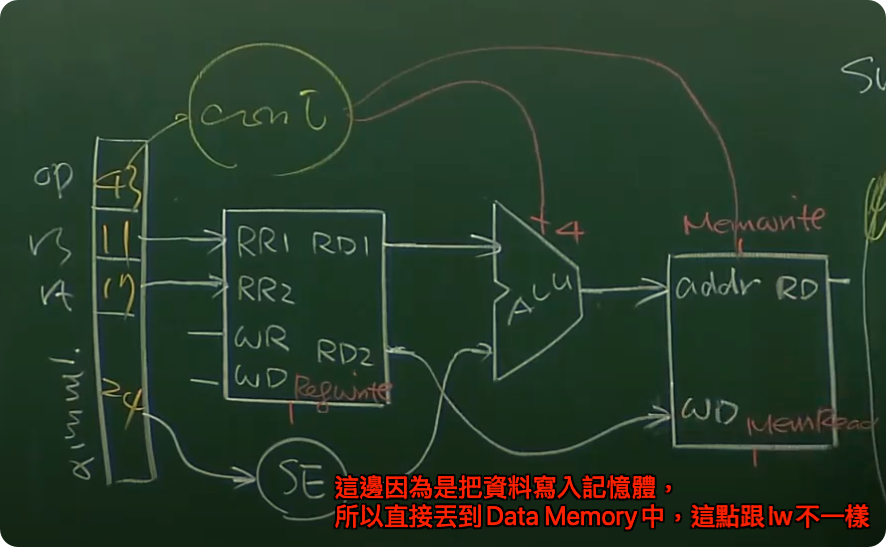 cont
Su
op
43
rs
11
rt
17
immI.
24
RR1 RD1
RR2
WR
RD2
WD
RegWrite
ALU
4
Memwrite
addr RD
WD
MemRead
SE
這邊因為是把資料寫入記憶體，
所以直接丟到Data Memory中，這點跟lw不一樣